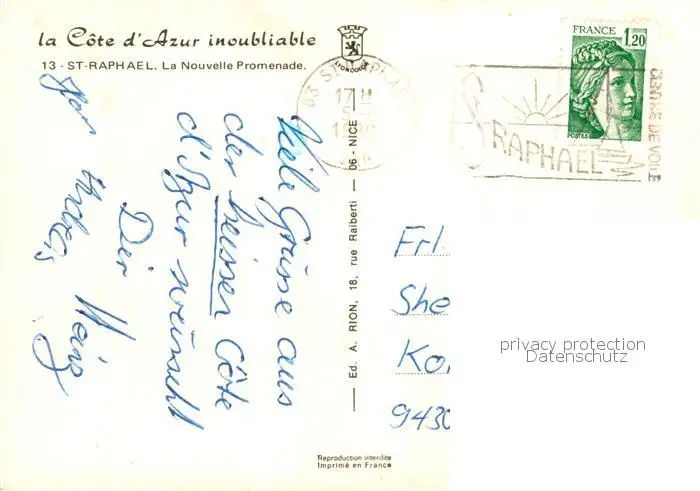 la Côte d'Azur inoubliable
13 - ST-RAPHAEL. La Nouvelle Promenade.
LYON COLOR
FRANCE
1,20
POSTES
17 H
ST RAPHAEL
CENTRE DE VOILE
Viele Grüsse aus
der heissen Côte
d'Azur wünscht
Dir Heinz
Ed. A. RION, 18, rue Raiberti — 06 - NICE
Frl.
She
Kor
9430
privacy protection
Datenschutz
Reproduction interdite
Imprimé en France